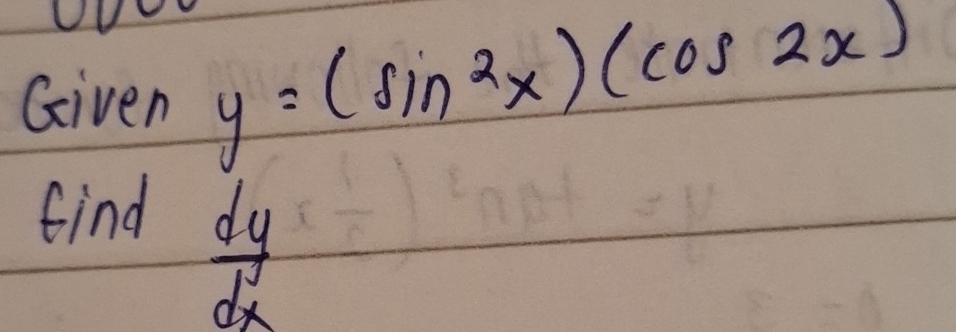 Given y = (sin²x)(cos 2x)
find dy
dx